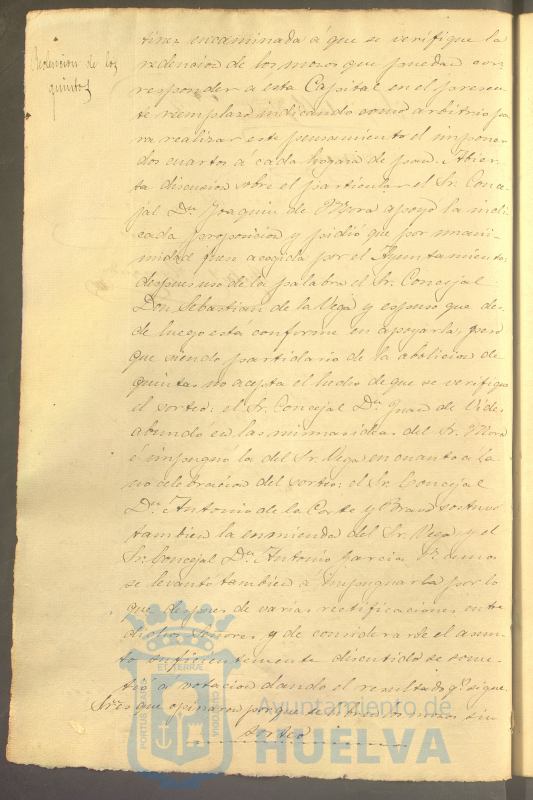 Redencion de los
quintos
tivos encaminada á que se verifique la
redencion de los mozos que puedan cor-
responder a esta Capital en el presen-
te reemplazo indicando como arbitrio pa
ra realizar este pensamiento el imponer
dos cuartos a cada hogaza de pan. Abier-
ta discusion sobre el particular el Sr. Conce-
jal Dn. Joaquin de Mora apoyó la indi-
cada proposicion y pidió que por unani-
midad fuera acogida por el Ayuntamiento:
despues uso de la palabra el Sr. Concejal
Don Sebastian de la Vega y espuso que des-
de luego está conforme en apoyarla, pero
que siendo partidario de la abolicion de
quintas no acepta el hecho de que se verifique
el sorteo: el Sr. Concejal Dn. Juan de Vides
abundó en las mismas ideas del Sr. Mora
é impugnó la del Sr. Vega en cuanto a la
no celebracion del sorteo: el Sr. Concejal
Dn. Antonio de la Corte y Bravo sostuvo
tambien la enmienda del Sr. Vega, y el
Sr. Concejal Dn. Antonio Garcia
se levantó tambien a impugnarla por lo
que despues de varias rectificaciones entre
dichos Señores, y de considerarse el asun-
to suficientemente discutido se some-
tió á votacion dando el resultado qe. sigue.
Sres. que opinaron porque se mozos sin
sorteo
PORTUS MARIS
ET TERRAE
CUSTODIA
Ayuntamiento de
HUELVA